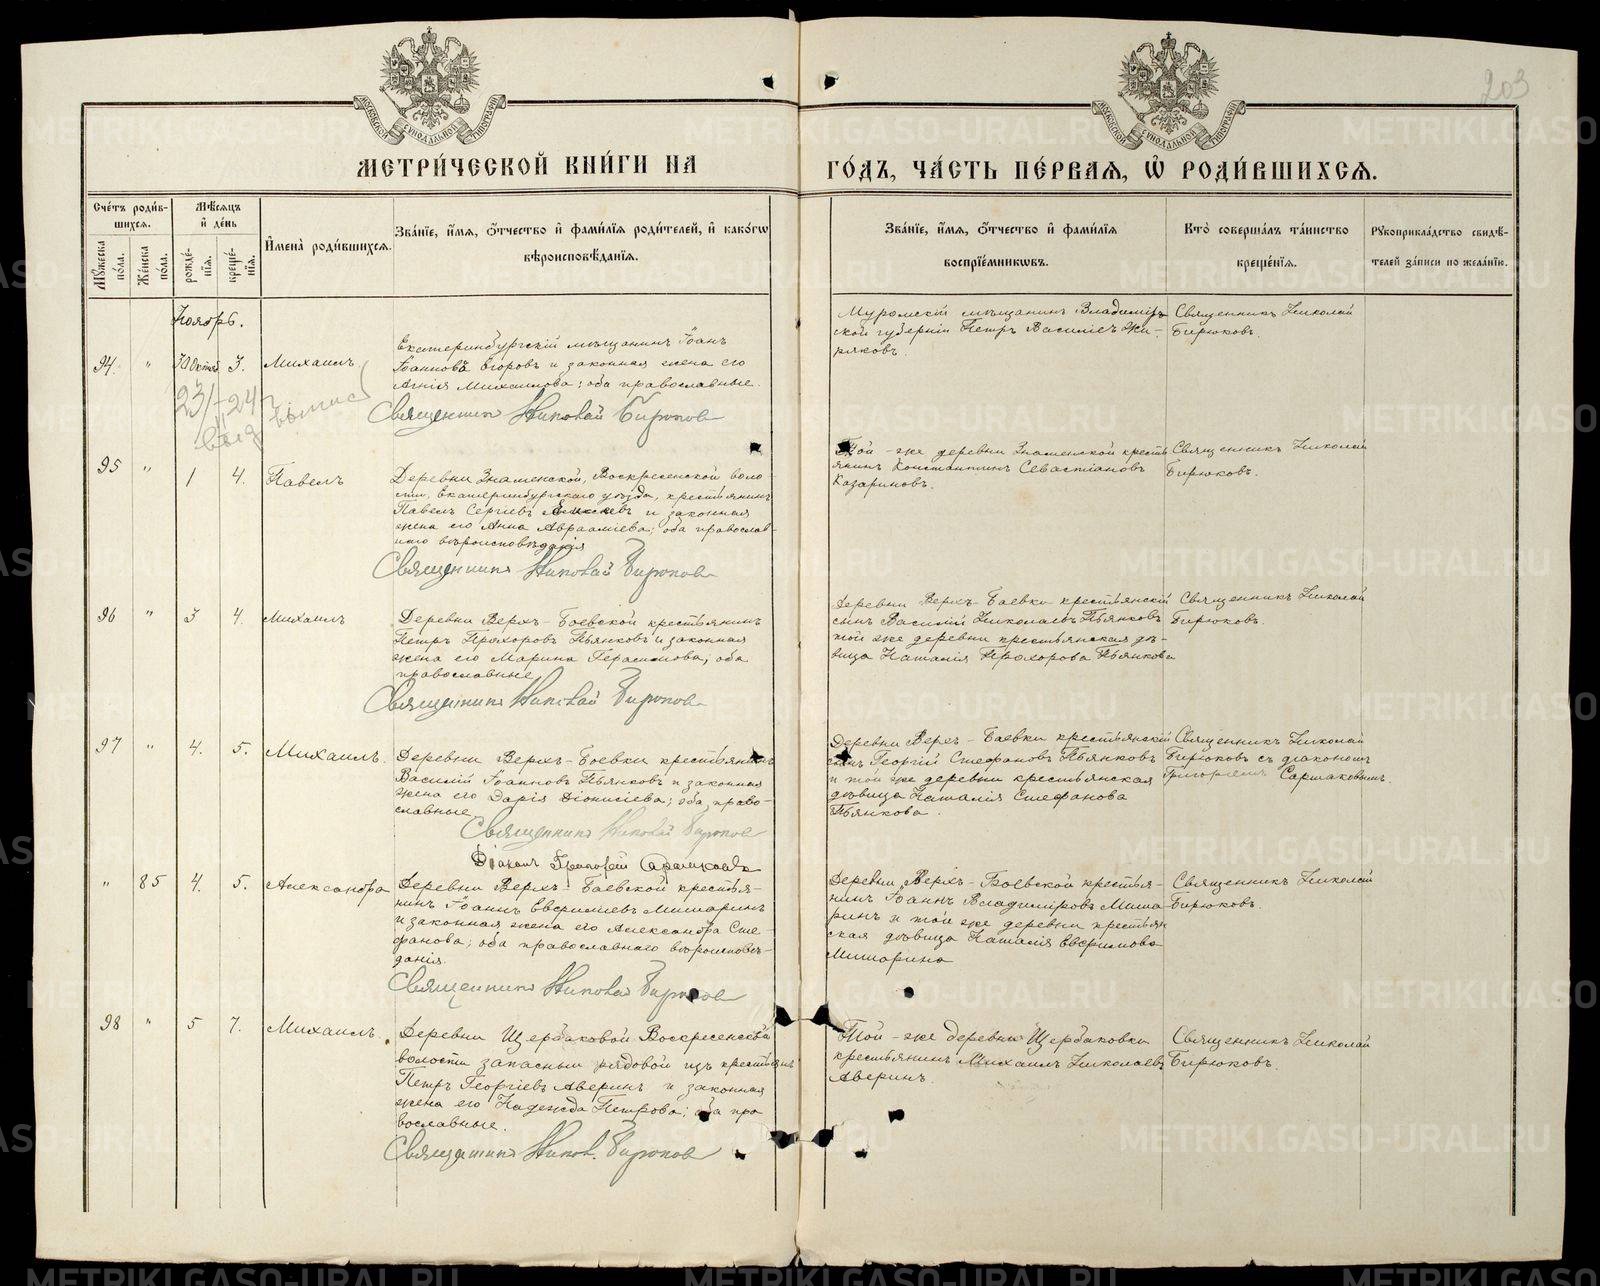 203
МОСКОВСКОЙ СѴНОДАЛЬНОЙ ТИПОГРАФІИ
МОСКОВСКОЙ СѴНОДАЛЬНОЙ ТИПОГРАФІИ
МЕТРИ́ЧЕСКОЙ КНИ́ГИ НА
ГО́ДЪ, ЧА́СТЬ ПЕ́РВАѦ, Ѽ РОДИ́ВШИХСѦ.
Сче́тъ роди́в-
шихсѧ.
Мꙋжеска по́ла.
Же́нска по́ла.
Мѣ́сѧцъ и҆ де́нь
рожде́-нїѧ.
креще́-нїѧ.
И҆мена̀ роди́вшихсѧ.
Зва́нїе, и҆́мѧ, ѻ҆́тчество и҆ фами́лїѧ роди́телей, и҆ како́гѡ
вѣроисповѣ́данїѧ.
Зва́нїе, и҆́мѧ, ѻ҆́тчество и҆ фами́лїѧ
воспрїе́мникѡвъ.
Кто̀ соверша́лъ та́инство
креще́нїѧ.
Рꙋкоприкла́дство свидѣ́-
телей за́писи по жела́нїю.
Ноябрь.
94. " 30 Октяб. 3. Михаилъ
Екатеринбургскій мѣщанинъ Іоаннъ
Іоанновъ Егоровъ и законная жена его
Агнія Михаилова; оба православные.
Священникъ Николай Бирюковъ
Муромскій мѣщанинъ Владимір-
ской губерніи Петръ Василіевъ Жи-
ряковъ.
Священникъ Николай
Бирюковъ.
23/ 24
выд. выпис
95 " 1 4. Павелъ
Деревни Знаменской, Воскресенской воло-
сти, Екатеринбургскаго уѣзда, крестьянинъ
Павелъ Сергіевъ и законная
жена его Анна Авраамiева; оба православ-
наго вѣроисповѣданія
Священникъ Николай Бирюковъ
Той-же деревни Знаменской кресть-
янинъ Константинъ Севастіановъ
Казариновъ.
Священникъ Николай
Бирюковъ.
96 " 3 4. Михаилъ
Деревни Верхъ-Боевской крестьянинъ
Петръ Прохоровъ Пьянковъ и законная
жена его Марина Герасимова; оба
православные
Священникъ Николай Бирюковъ
Деревни Верхъ-Боевки крестьянскій
сынъ Василій Николаевъ Пьянковъ
той же деревни крестьянская дѣ-
вица Наталія Прохорова Пьянкова
Священникъ Николай
Бирюковъ.
97 " 4. 5. Михаилъ.
Деревни Верхъ-Боевки крестьянинъ
Василій Іоанновъ Пьянковъ и законная
жена его Дарія Діонисіева; оба право-
славные
Священникъ Николай Бирюковъ
Діаконъ Григорій
Деревни Верхъ-Боевки крестьянскій
сынъ Георгій Стефановъ Пьянковъ
и той же деревни крестьянская
дѣвица Наталія Стефанова
Пьянкова.
Священникъ Николай
Бирюковъ съ діакономъ
Григоріемъ
" 85 4. 5. Александра
Деревни Верхъ-Боевской крестья-
нинъ Іоаннъ Евфиміевъ Мишаринъ
и законная жена его Александра Сте-
фанова; оба православнаго вѣроисповѣ-
данія.
Священникъ Николай Бирюковъ
Деревни Верхъ-Боевской крестья-
нинъ Іоаннъ Владиміровъ Миша-
ринъ и той же деревни крестьян
ская дѣвица Наталія Евфимова
Мишарина
Священникъ Николай
Бирюковъ.
98 " 5 7. Михаилъ.
Деревни Щербаковой Воскресенской
волости запасный рядовой изъ крестьянъ
Петръ Георгіевъ Аверинъ и законная
жена его Надежда Петрова; оба пра
вославные.
Священникъ Никол. Бирюковъ
Той-же деревни Щербаковки
крестьянинъ Михаилъ Николаевъ
Аверинъ.
Священникъ Николай
Бирюковъ.